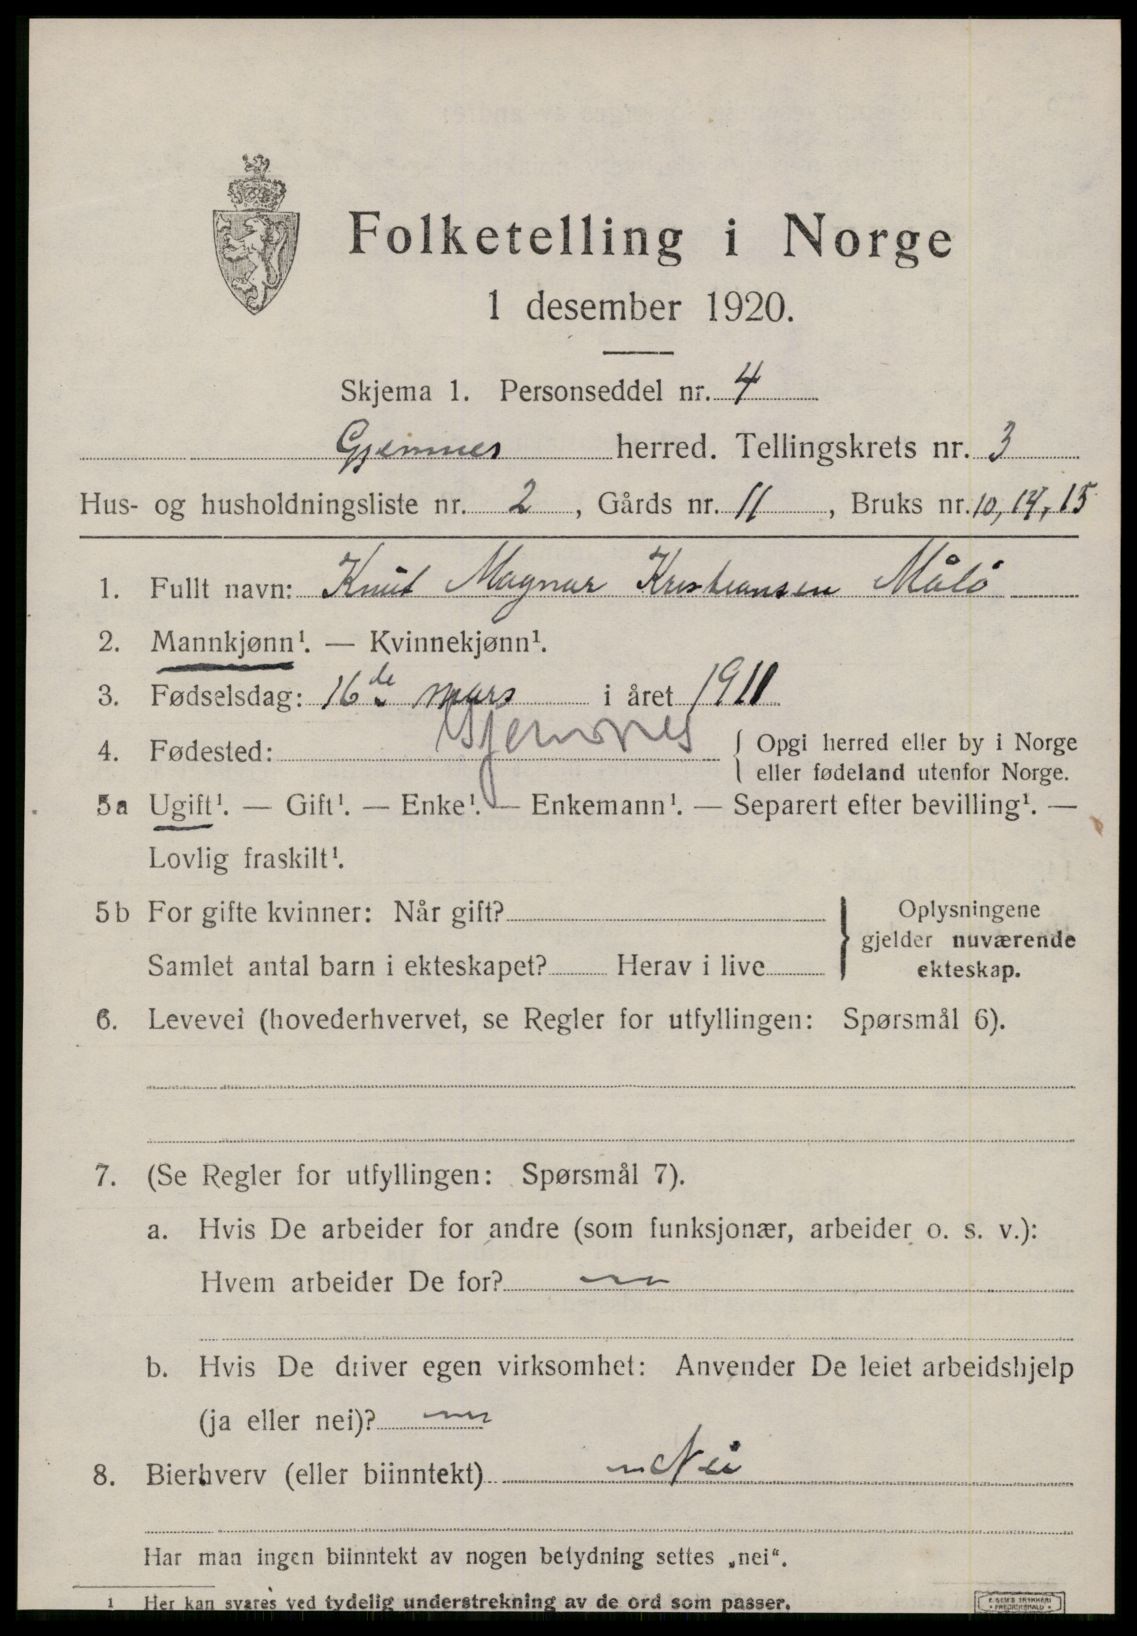 Folketelling i Norge
1 desember 1920.
Skjema 1. Personseddel nr. 4
Gjemnes herred. Tellingskrets nr. 3
Hus- og husholdningsliste nr. 2, Gårds nr. 11, Bruks nr. 10, 14, 15
1. Fullt navn: Knut Magnar Kristiansen Målö
2. Mannkjønn¹. — Kvinnekjønn¹.
3. Fødselsdag: 16de mars i året 1911
4. Fødested: Gjemnes { Opgi herred eller by i Norge
eller fødeland utenfor Norge.
5a Ugift¹. — Gift¹. — Enke¹. — Enkemann¹. — Separert efter bevilling¹. —
Lovlig fraskilt¹.
5b For gifte kvinner: Når gift? } Oplysningene
gjelder nuværende
Samlet antal barn i ekteskapet? Herav i live ekteskap.
6. Levevei (hovederhvervet, se Regler for utfyllingen: Spørsmål 6).
7. (Se Regler for utfyllingen: Spørsmål 7).
a. Hvis De arbeider for andre (som funksjonær, arbeider o. s. v.):
Hvem arbeider De for?
b. Hvis De driver egen virksomhet: Anvender De leiet arbeidshjelp
(ja eller nei)?
8. Bierhverv (eller biinntekt) Nei
Har man ingen biinntekt av nogen betydning settes „nei“.
1 Her kan svares ved tydelig understrekning av de ord som passer.